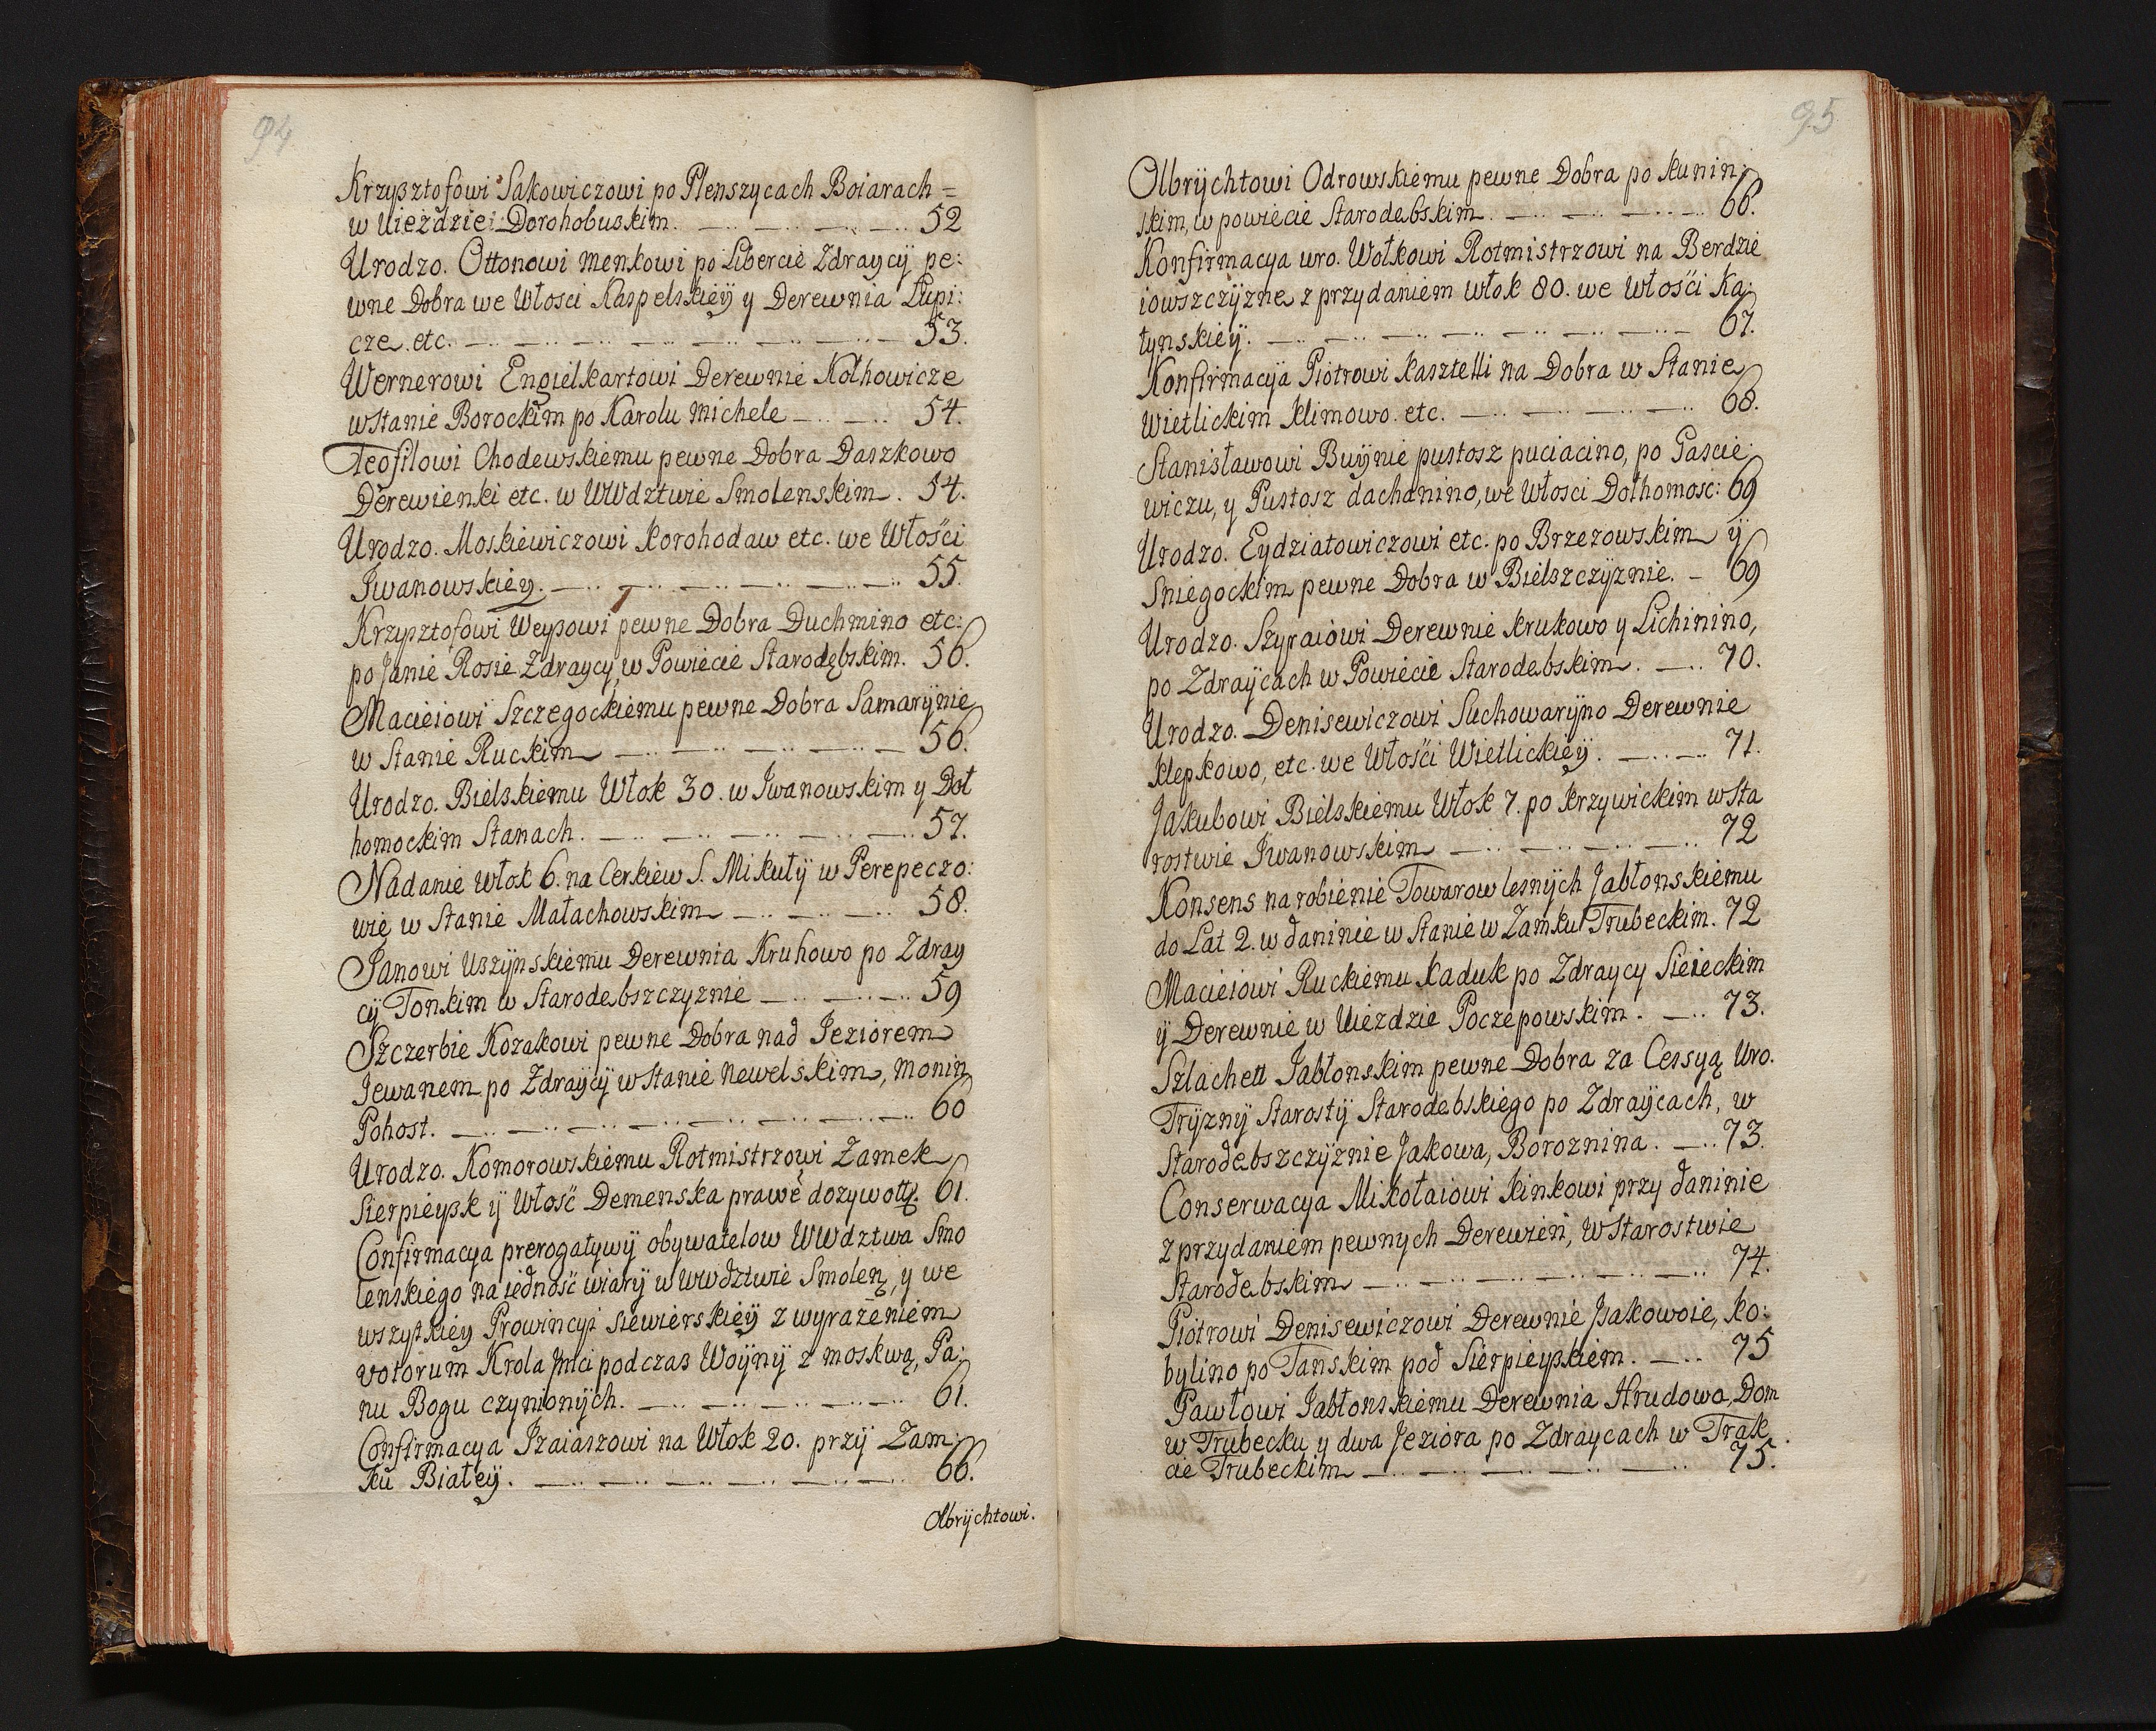 94
Krzysztofowi Sakowiczowi po Plenszycach Boiarach =
w Uieździe Dorohobuskim. 52
Urodzo. Ottonowi Menkowi po Libercie Zdraycÿ pe:
wne Dobra we Włosci Kaspelskieÿ y Derewnia Łupi:
cze etc. 53.
Wernerowi Engielkartowi Derewnie Kołhowicze
w Stanie Borockim po Karolu Michele 54.
Teofilowi Chodewskiemu pewne Dobra Daszkowo
Derewienki etc. w WWdztwie Smolenskim. 54.
Urodzo. Moskiewiczowi Korohodaw etc. we Włości
Jwanowskiey. 55.
Krzysztofowi Weyssowi pewne Dobra Duchmino etc:
po Janie Rosie Zdraycy, w Powiecie Starodębskim. 56.
Macieiowi Szczegockiemu pewne Dobra Samarÿnie
w Stanie Ruckim 56.
Urodzo. Bielskiemu Włok 30. w Jwanowskim y Doł
homockim Stanach. 57.
Nadanie Włok 6. na Cerkiew S. Mikułÿ w Perepeczo:
wie w Stanie Małachowskim 58.
Janowi Uszÿnskiemu Derewnia Kruhowo po Zdray
cÿ Tonkim w Starodebszczyznie 59
Szczerbie Kozakowi pewne Dobra nad Jeziorem
Jewanem po Zdraÿcÿ w Stanie Newelskim, Monin
Pohost. 60
Urodzo. Komorowskiemu Rotmistrzowi Zamek
Sierpieysk ÿ Włość Demenska prawe dozywott. 61.
Confirmacya prerogatywÿ obywatelow WWdztwa Smo
lenskiego na iedność wiarÿ w WWdztwie Smolen, y we
wszytkiey Prowincyi Siewierskieÿ z wyrażeniem
votorum Krola Jmci podczas Woÿnÿ z Moskwą, Pa:
nu Bogu czynionÿch. 61.
Confirmacya Jzaiaszowi na Włok 20. przÿ Zam:
ku Białeÿ. 66.
Olbrÿchtowi.
95
Olbrÿchtowi Odrowskiemu pewne Dobra po Kunin:
skim, w powiecie Starodebskim. 66.
Konfirmacya uro. Wołkowi Rotmistrzowi na Berdzie
iowszczÿzne z przydaniem Włok 80. we Włości Ka:
tynskieÿ. 67.
Konfirmacÿa Piotrowi Kasztelli na Dobra w Stanie
Wietlickim Klimowo. etc. 68.
Stanisławowi Buÿnie pustosz puciacino, po Gascie:
wiczu, y Pustosz dachanino, we Włosci Dołhomosc: 69
Urodzo. Eydziatowiczowi etc. po Brzezowskim ÿ
Sniegockim pewne Dobra w Bielszczÿznie. 69
Urodzo. Szyraiowi Derewnie Krukowo y Lichinino,
po Zdraÿcach w Powiecie Starodebskim. 70.
Urodzo. Denisewiczowi Suchowarÿno Derewnie
Klepkowo, etc. we Włości Wietlickieÿ. 71.
Jakubowi Bielskiemu Włok 7. po Krzywickim w Sta
rostwie Jwanowskim 72
Konsens na robienie Towarow lesnÿch Jabłonskiemu
do Lat 2. w daninie w Stanie w Zamku Trubeckim. 72
Macieiowi Ruckiemu Kaduk po Zdraycy Sieieckim
ÿ Derewnie w Uiezdzie Poczepowskim. 73.
Szlachett Jabłonskim pewne Dobra za Cessyą Uro.
Trÿznÿ Starostÿ Starodebskiego po Zdraÿcach, w
Starodebszczÿznie Jakowa, Boroznina. 73.
Conserwacya Mikołaiowi Kinkowi przy daninie
z przydaniem pewnych Derewień, w Starostwie
Starodebskim 74.
Piotrowi Denisewiczowi Derewnie Jsakowoie, Ko:
bylino po Tanskim pod Sierpieyskiem. 75
Pawłowi Jabłonskiemu Derewnia Hrudowo, Dom
w Trubecku y dwa Jeziora po Zdraycach w Trak
cie Trubeckim 75.